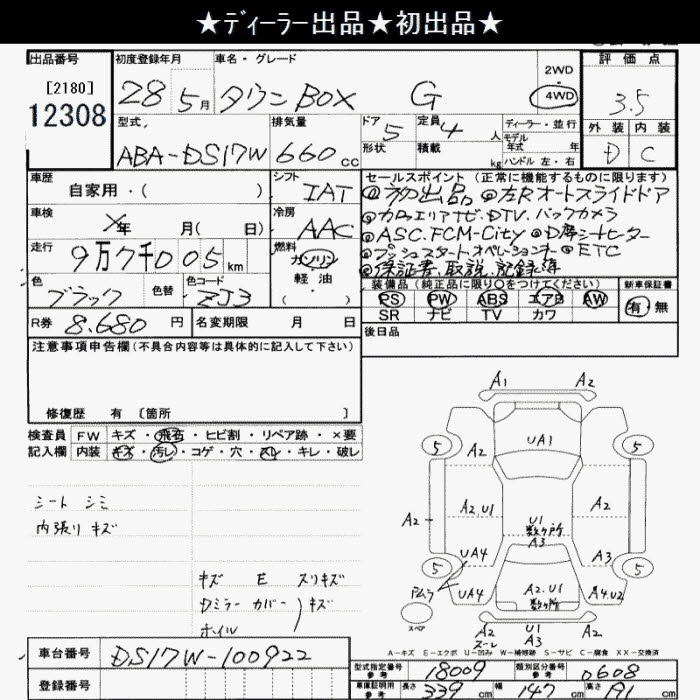 ★ディーラー出品★初出品★
出品番号
[2180]
12308
初度登録年月
28 5月
車名・グレード
タウンBOX G
2WD
4WD
評価点
3.5
外装 内装
D C
型式
ABA-DS17W
排気量
660cc
ドア 5
形状
定員 4人
積載 kg
ディーラー・並行
モデル
年式 年
ハンドル 左・右
車歴
自家用・( )
シフト
IAT
車検
年 月( 日)
冷房
AAC
走行
9万7千005km
燃料
ガソリン
軽油
( )
色
ブラック
色替
色コード
ZJ3
R券 8.680円
名変期限 月 日
セールスポイント(正常に機能するものに限ります)
◎初出品 ◎左Rオートスライドドア
◎カロッエリアナビ.DTV.バックカメラ
◎ASC.FCM-City ◎D席シートヒーター
◎プッシュスタートオペレーション ◎ETC
◎保証書.取説.記録簿
装備品(純正品に限り○をつけてください)
新車保証書
PS PW ABS エアB AW
有・無
SR ナビ TV カワ
後日品
注意事項申告欄(不具合内容等は具体的に記入して下さい)
修復歴 有 [箇所 ]
検査員 FW キズ・飛石・ヒビ割・リペア跡・×要
記入欄 内装 キズ・汚レ・コゲ・穴・スレ・キレ・破レ
シート シミ
内張り キズ
キズ E スリキズ
Dミラーカバー キズ
ホイル
A1 A2
5 5
UA1
A2
A2 A2.U1 A2
U1
数ヶ所
A3
UA4 A3
5 5
UA4 A2.U1 A4.U2
数ヶ所
スペア
A2 U1 A2
A3
A-キズ E-エクボ U-凹み W-補修跡 S-サビ C-腐食 XX-交換済
車台番号 DS17W-100922
登録番号
型式指定番号
参考
18009
類別区分番号
参考
0608
車庫証明用
参考
長さ 339cm 幅 147cm 高さ 191cm